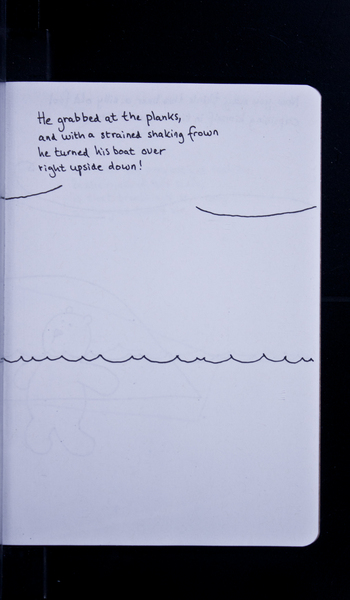 He grabbed at the planks,
and with a strained shaking frown
he turned his boat over
right upside down!